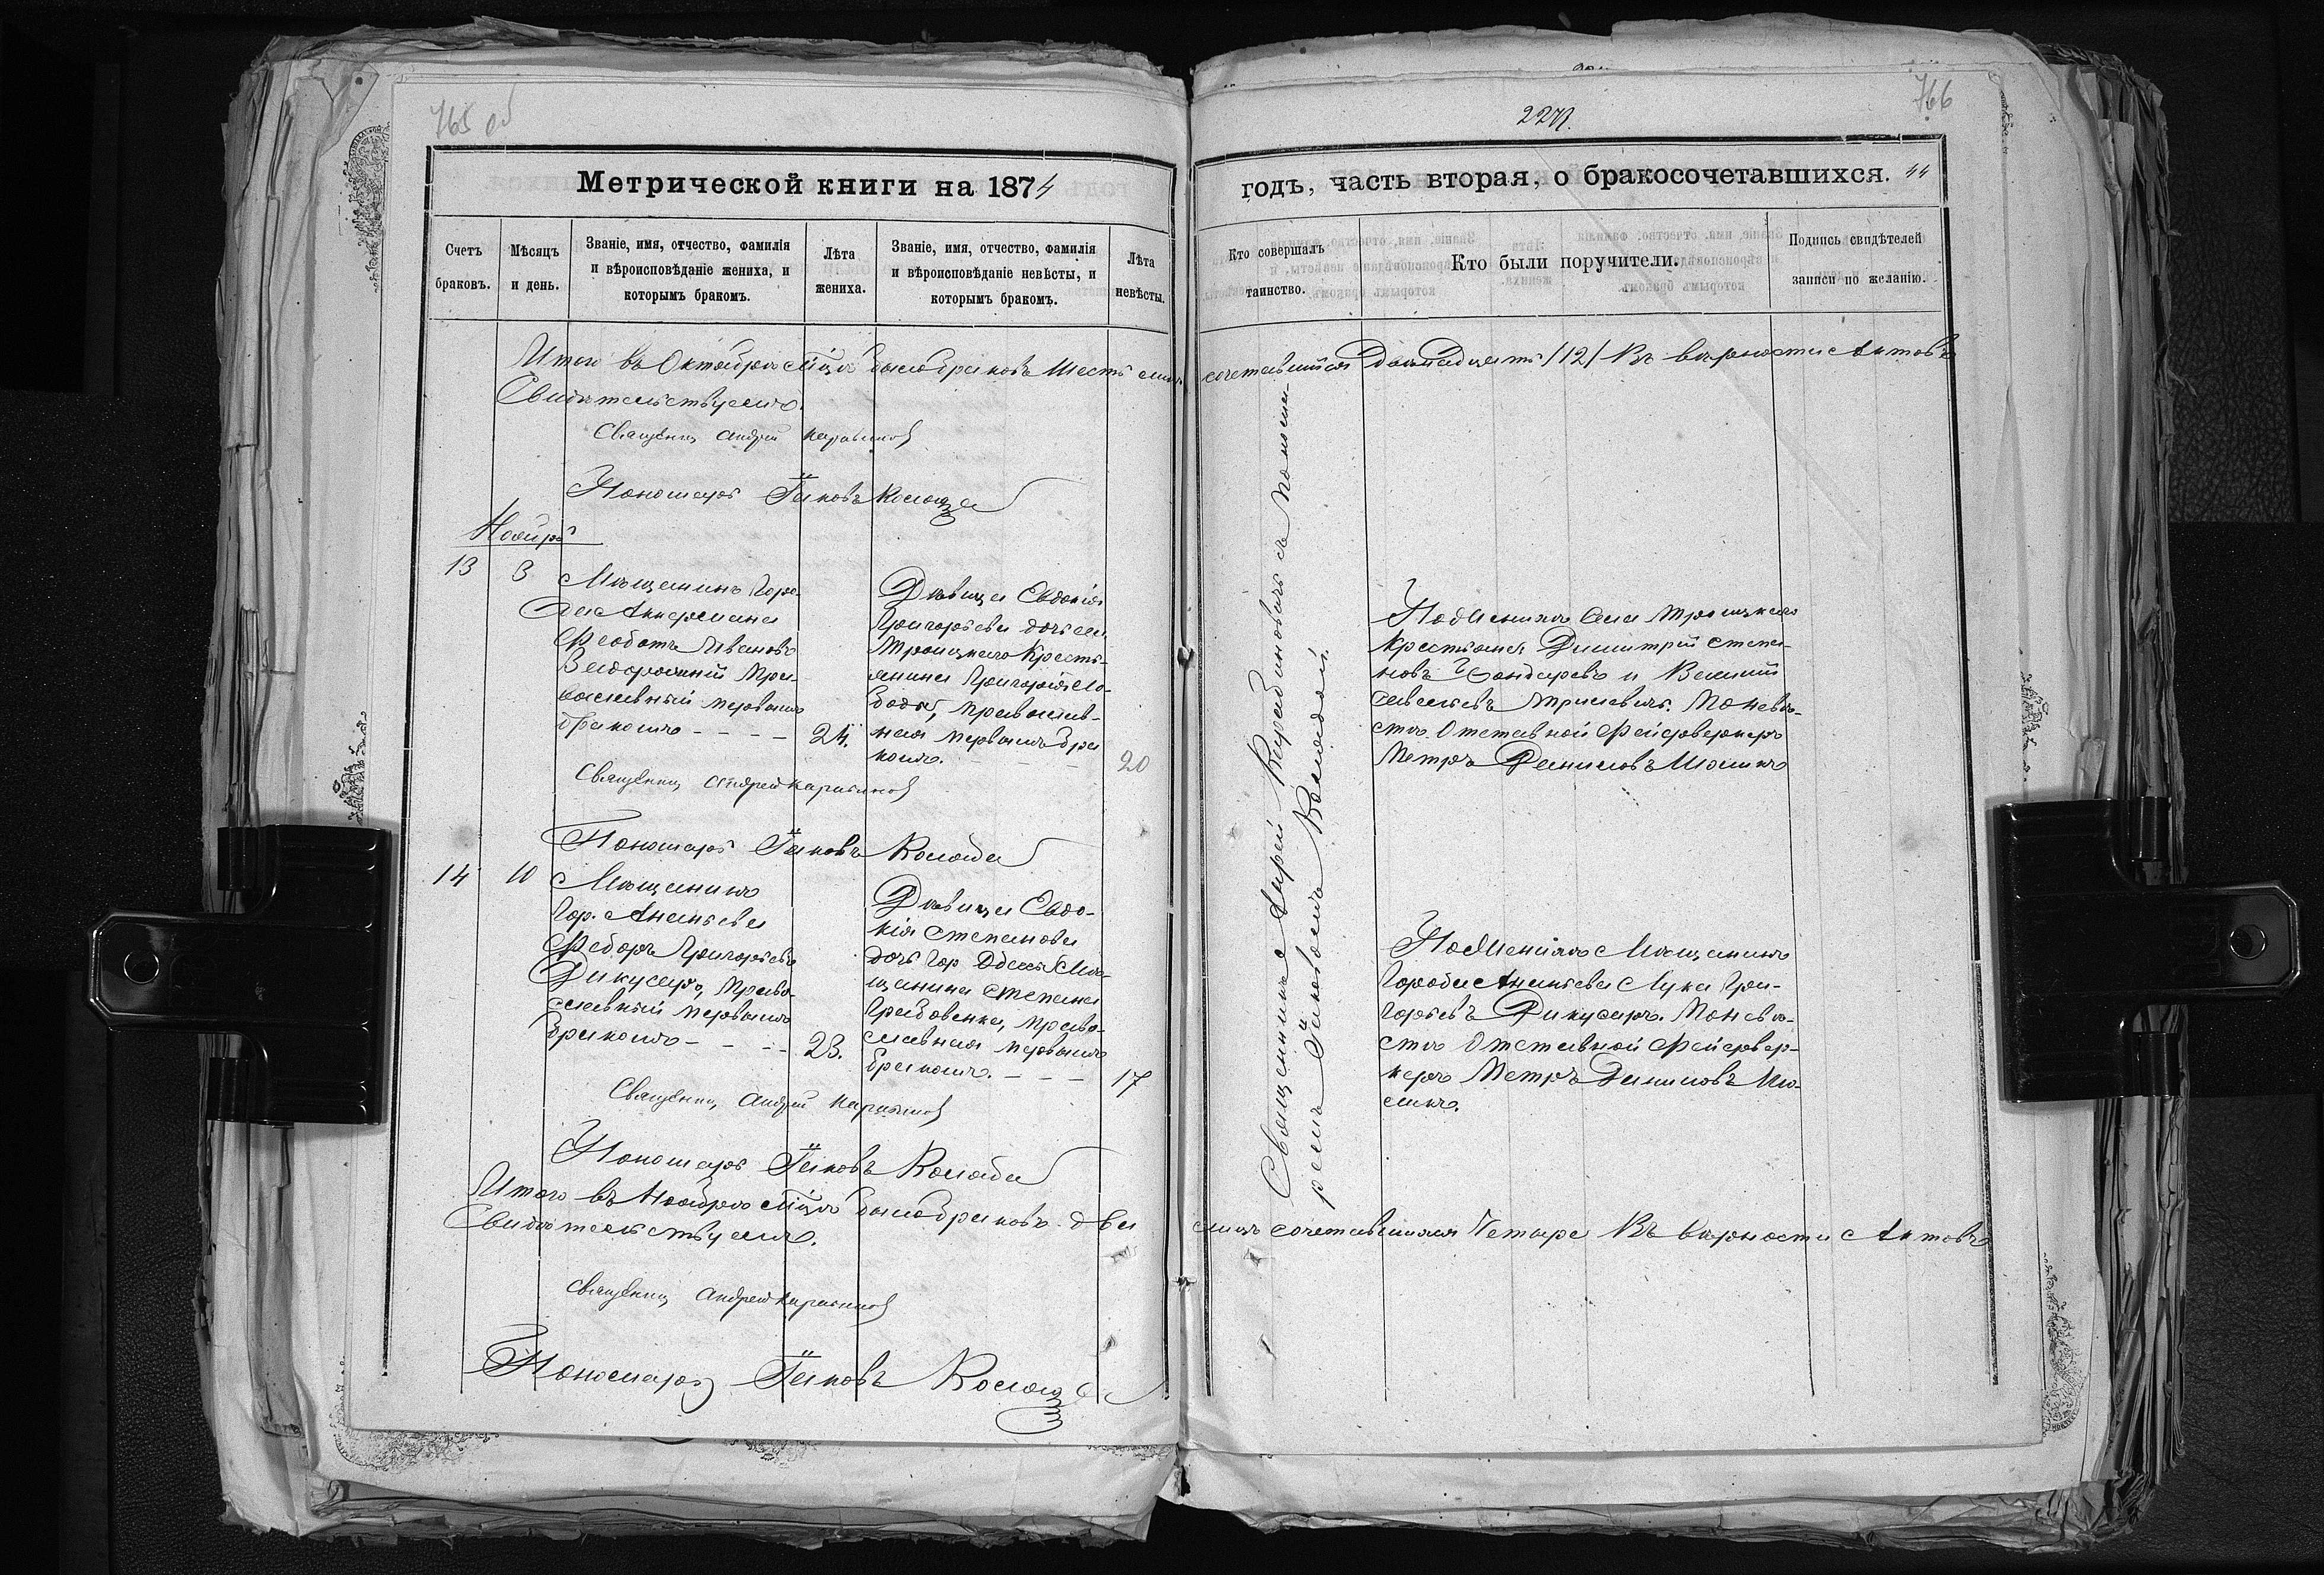 765 об
Метрической книги на 1874
Счетъ браковъ.
Мѣсяцъ и день.
Званіе, имя, отчество, фамилія
и вѣроисповѣданіе жениха, и
которымъ бракомъ.
Лѣта жениха.
Званіе, имя, отчество, фамилія
и вѣроисповѣданіе невѣсты, и
которымъ бракомъ.
Лѣта невѣсты.
Итого въ Октябрѣ мцѣ было браковъ Шесть лицъ
Свидѣтельствуемъ.
Священникъ Андрей
Пономарь Іаковъ Колода
Ноябрь
13
3
Мѣщанинъ Горо-
да Аккермана
Феодотъ Ивановъ
Пра-
вославный первымъ
бракомъ - - - -
24.
Дѣвица Евдокія
Григорьева дочь села
Троицкаго Кресть-
янина Григорія Ло-
боды, православ-
ная первымъ бра
комъ.
20
Священникъ Андрей
Пономарь Іаковъ Колода
14
10
Мѣщанинъ
Гор. Ананьева
Федоръ Григорьевъ
Дикусаръ, право-
славный первымъ
бракомъ - - - -
23.
Дѣвица Евдо-
кія Степанова
дочь Гор. Одессы Мѣ-
щанина Степана
Грабовенка, право-
славная первымъ
бракомъ. - - -
17
Священникъ Андрей
Пономарь Іаковъ Колода
Итого въ Ноябрѣ мцѣ было браковъ два
Свидѣтельствуемъ.
Священникъ Андрей
Пономарь Іаковъ Колода
766
227.
годъ, часть вторая, о бракосочетавшихся. 44
Кто совершалъ таинство.
Кто были поручители.
Подпись свидѣтелей
записи по желанію.
сочетавшихся Двѣнадцать /12/ Въ вѣрности Актовъ
Священникъ Андрей Карабиновичъ съ Понома-
ремъ Іаковомъ Колодой.
По Женихѣ Села Троицкаго
Крестьяне Димитрій Степа-
новъ Бондаревъ и Василій
Савельевъ По невѣ-
стѣ Отставной Фейерверкеръ
Петръ Даниловъ
По Женихѣ Мѣщанинъ
Города Ананьева Лука Гри-
горьевъ Дикусаръ. По невѣ-
стѣ Отставной Фейервер-
керъ Петръ Даниловъ
лицъ сочетавшихся Четыре Въ вѣрности Актовъ